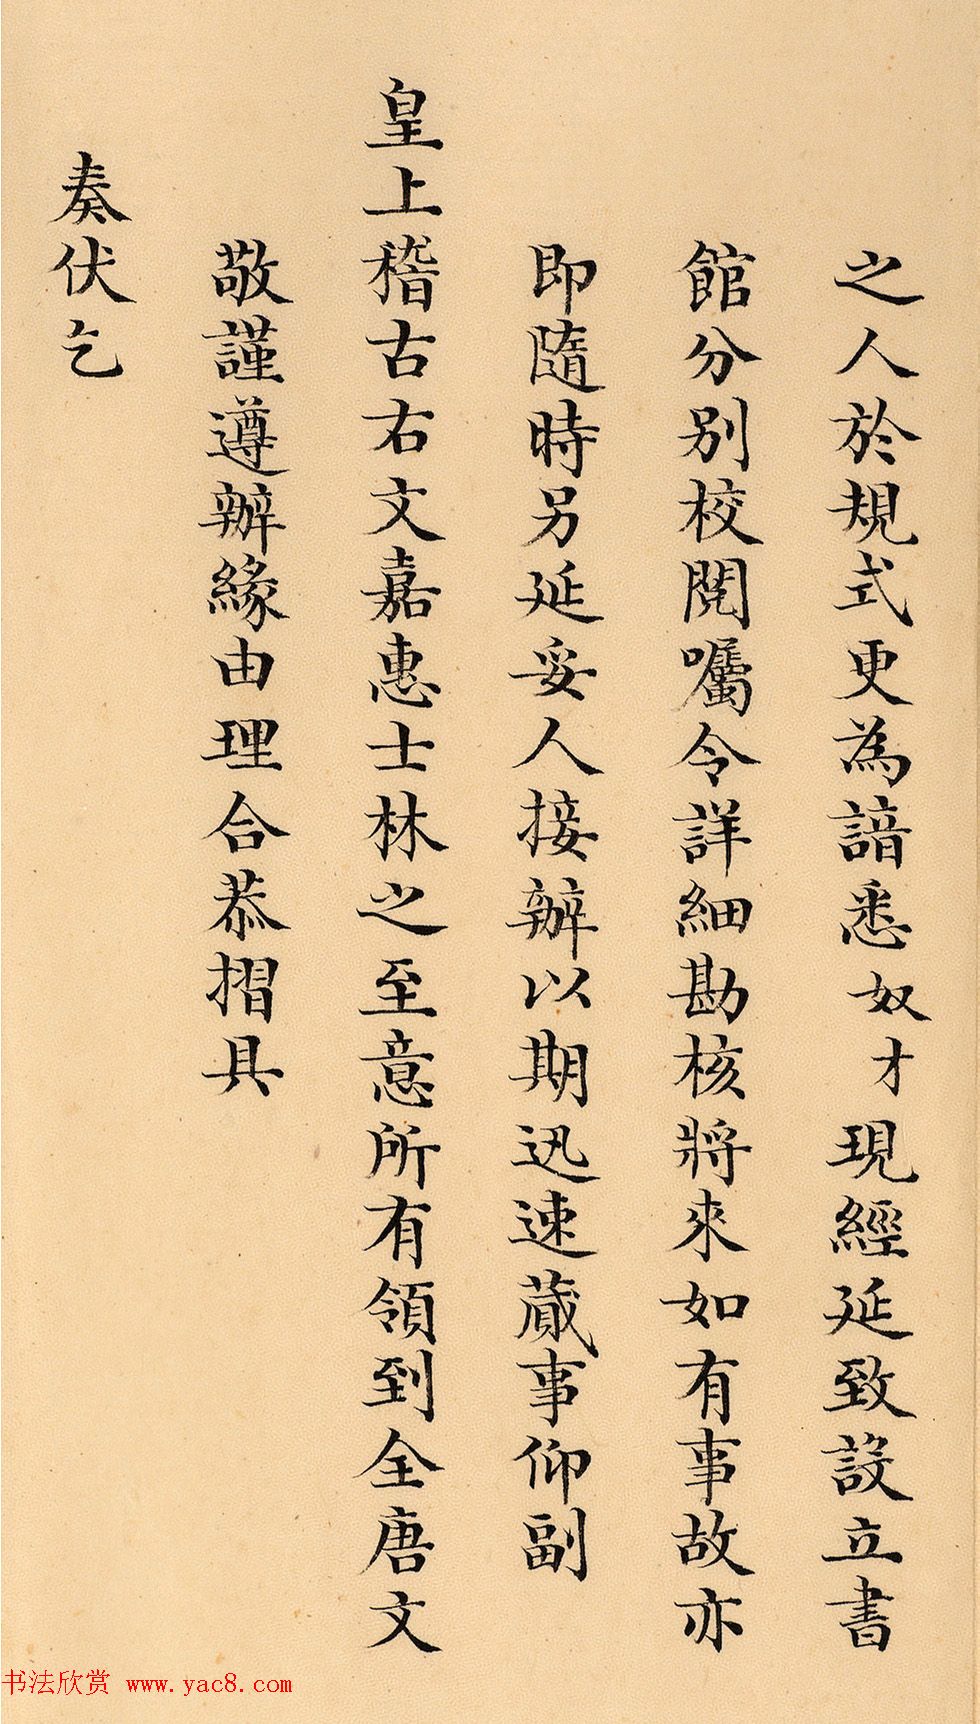 之人於規式更為諳悉奴才現經延致設立書
館分别校閱囑令詳細勘核將來如有事故亦
即隨時另延妥人接辦以期迅速蕆事仰副
皇上稽古右文嘉惠士林之至意所有領到全唐文
敬謹遵辦緣由理合恭摺具
奏伏乞
书法欣赏 www.yac8.com